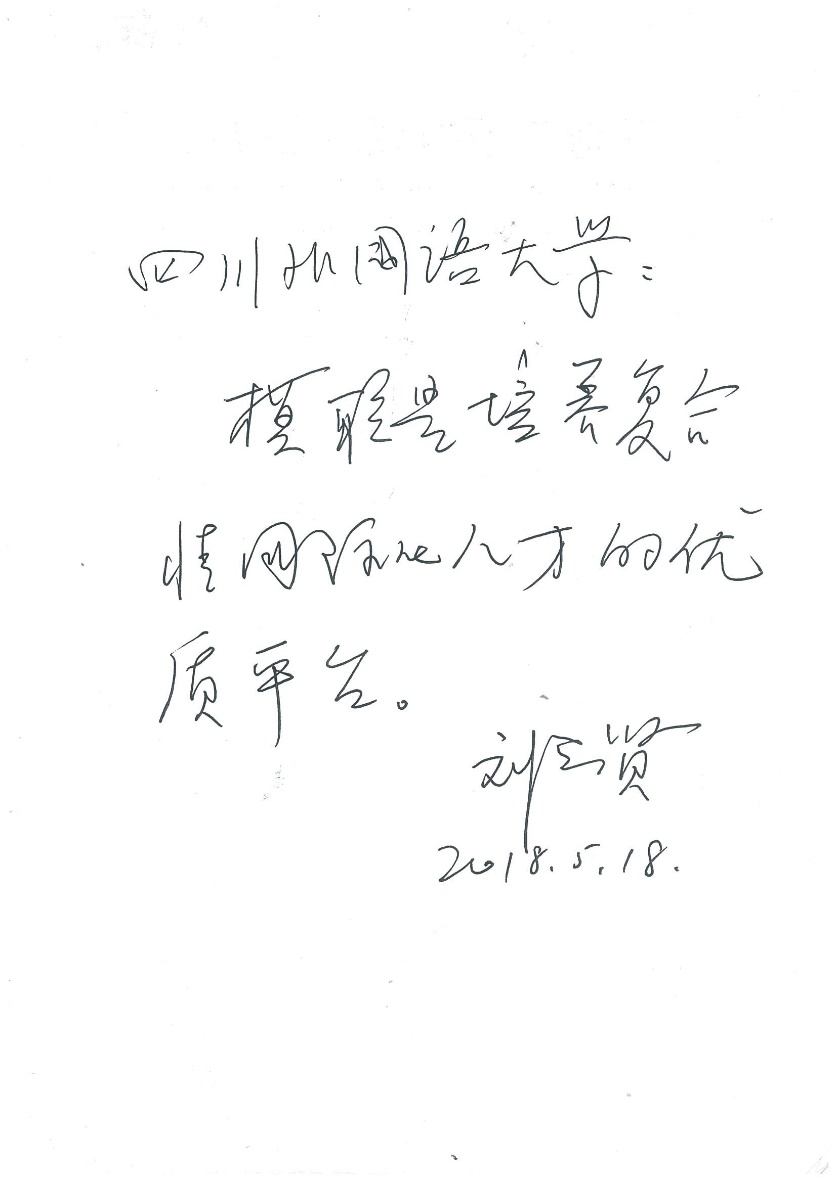 四川外国语大学:
模联是培养复合
性国际化人才的优
质平台。
刘志贤
2018.5.18.